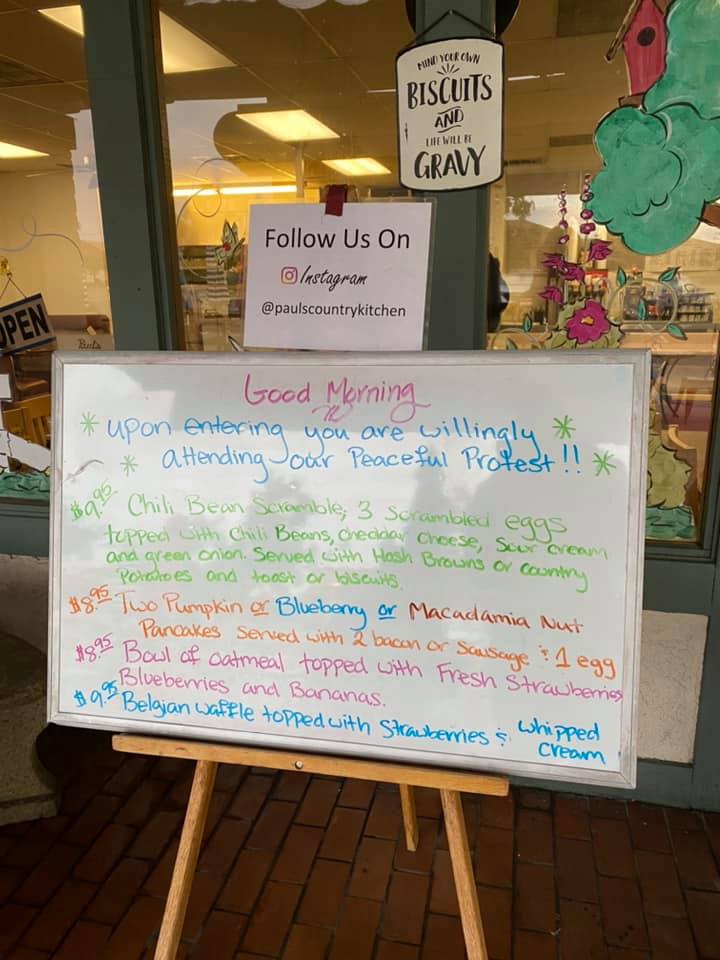 MIND YOUR OWN
BISCUITS
AND
LIFE WILL BE
GRAVY
Follow Us On
Instagram
@paulscountrykitchen
OPEN
Good Morning
* upon entering you are willingly *
* attending our Peaceful Protest!! *
$9.95 Chili Bean Scramble; 3 scrambled eggs
topped with Chili Beans, cheddar cheese, Sour cream
and green onion. Served with Hash Browns or country
Potatoes and toast or biscuits.
$8.95 Two Pumpkin or Blueberry or Macadamia Nut
Pancakes served with 2 bacon or sausage & 1 egg
$8.95 Bowl of oatmeal topped with Fresh Strawberries
Blueberries and Bananas.
$9.95 Belgian waffle topped with Strawberries & whipped
cream